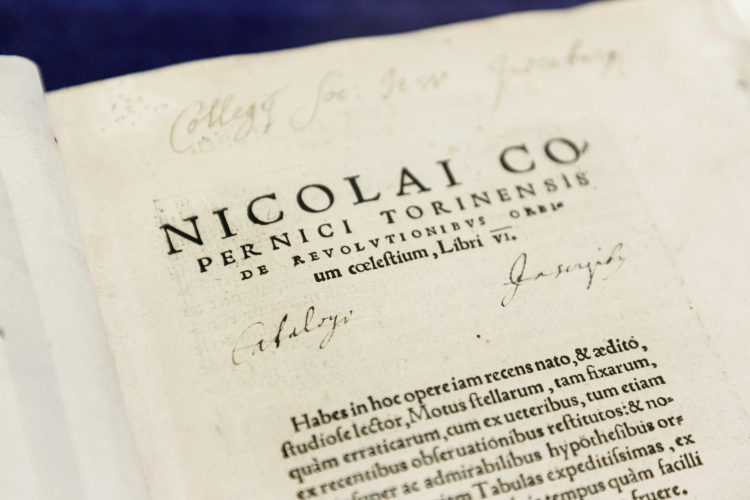 Collegij Soc: Jesu Judenburgi
NICOLAI CO
PERNICI TORINENSIS
DE REVOLVTIONIBVS ORBI⸗
um cœleſtium, Libri VI.
Catalogo Inscriptus
Habes in hoc opere iam recens nato, & ædito,
ſtudioſe lector, Motus ſtellarum, tam fixarum,
quàm erraticarum, cum ex ueteribus, tum etiam
ex recentibus obſeruationibus reſtitutos: & no⸗
ſuper ac admirabilibus hypotheſibus or⸗
Tabulas expeditiſsimas, ex
tempus quàm facilli
fruere.